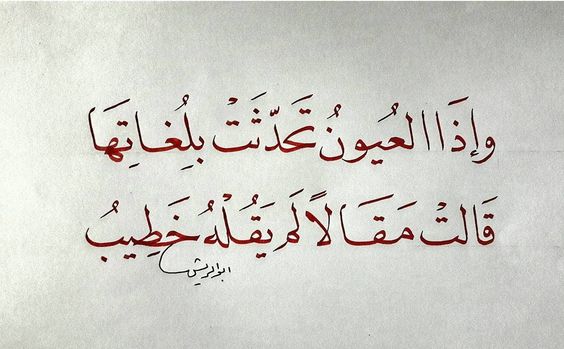 وإذَا العُيونُ تَحَدّثَتْ بلِغُاتِهَا
قَالتْ مَقَالاً لَم يَقُلْهُ خَطِيبُ
ابوالريش